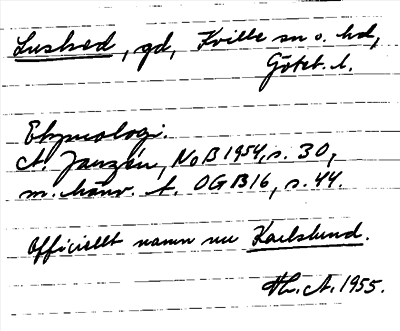 Lushed, gd, Kville sn o. hd,
Göteb. l.
Etymologi.
A. Janzén, NoB 1954, s. 30,
m. hänv. t. OGB 16, s. 44.
Officiellt namn nu Karlslund.
Hz. A. 1955.